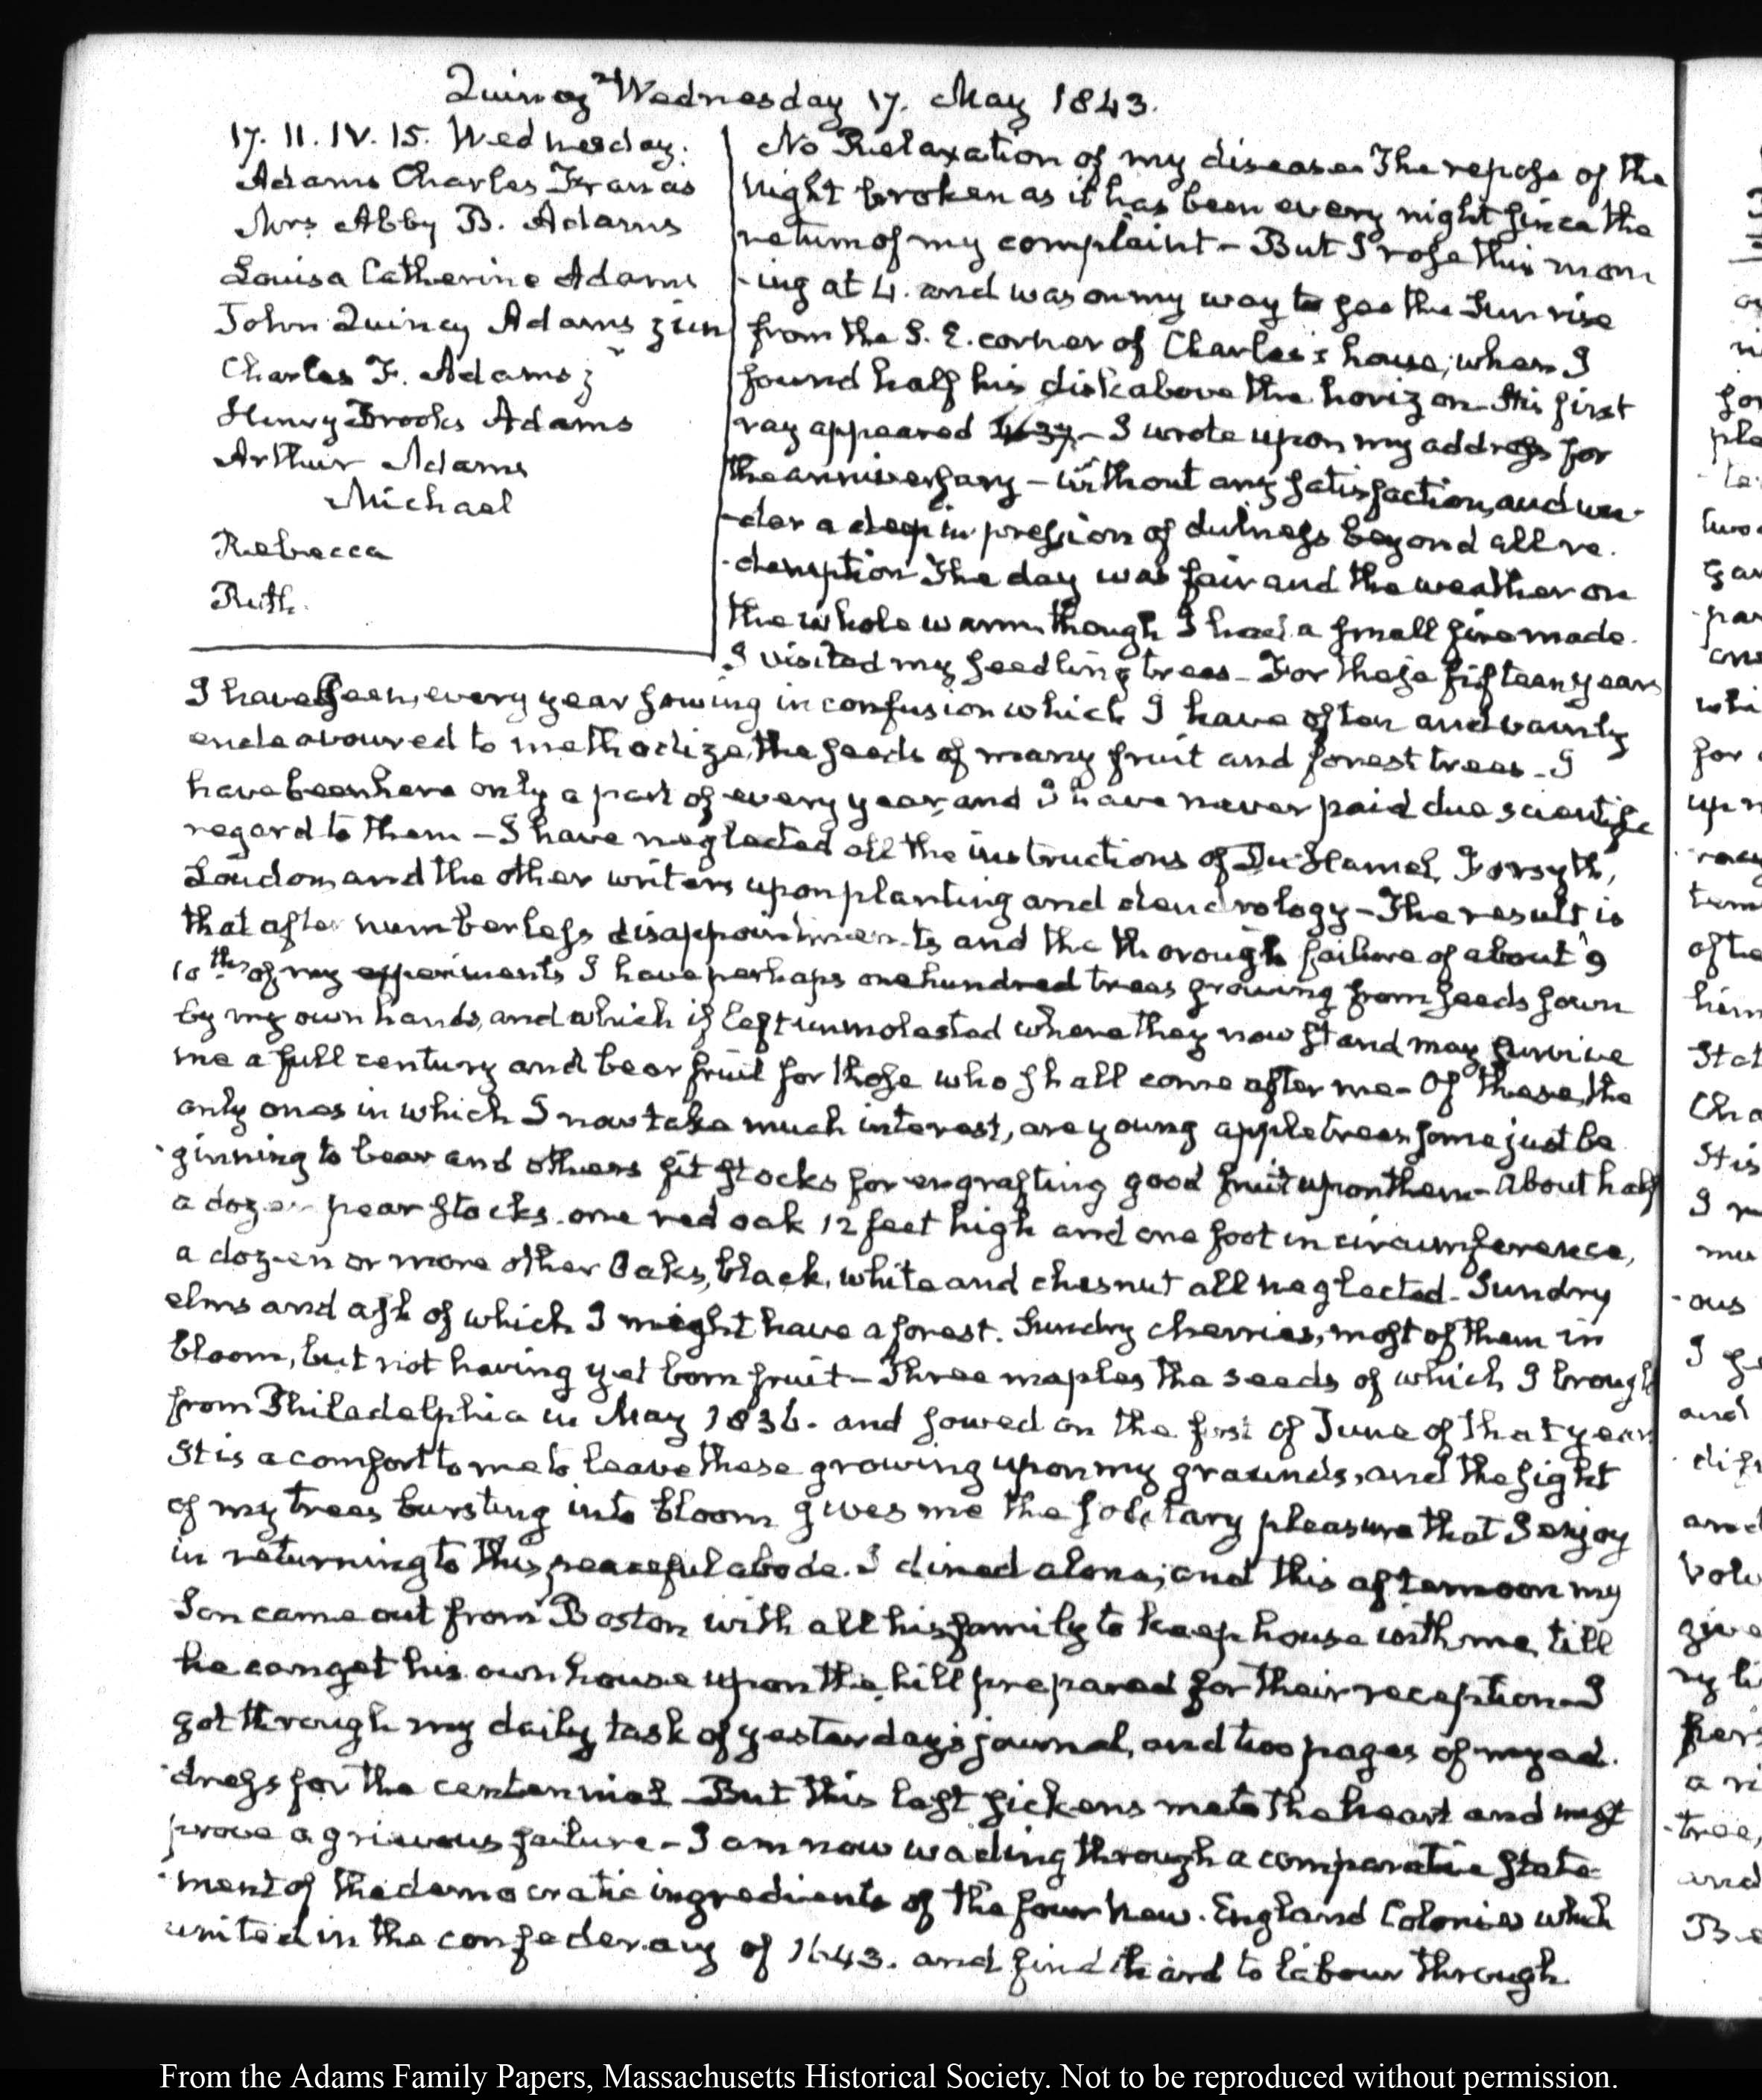 Quincy Wednesday 17. May 1843.
17. II. IV. 15. Wednesday.
Adams Charles Francis
Mrs Abby B. Adams
Louisa Catherine Adams
John Quincy Adams jun
Charles F. Adams jr
Henry Brooks Adams
Arthur Adams
Michael
Rebecca
Ruth.
No Relaxation of my disease. The repose of the
night broken as it has been every night since the
return of my complaint – But I rose this morn
-ing at 4. and was on my way to see the Sun rise
from the S. E. corner of Charles's house; when I
found half his disk above the horizon. His first
ray appeared 4:37 – I wrote upon my address for
the anniversary – without any satisfaction, and un-
-der a deep impression of dulness beyond all re.
-demption The day was fair and the weather on
the whole warm though I had a small fire made.
I visited my seedling trees – For these fifteen years
I have been, every year sowing in confusion which I have often and vainly
endeavoured to methodize, the seeds of many fruit and forest trees – I
have been here only a part of every year, and I have never paid due scientific
regard to them – I have neglected all the instructions of Du Hamel, Forsyth,
Loudon, and the other writers upon planting and dendrology – The result is
that after numberless disappointments and the thorough failure of about 9
10ths of my experiments I have perhaps one hundred trees growing from seeds sown
by my own hands, and which if left unmolested where they now stand may survive
me a full century and bear fruit for those who shall come after me – Of these, the
only ones in which I now take much interest, are young apple trees, some just be
-ginning to bear and others fit stocks for engrafting good fruit upon them – About half
a dozen pear stocks. one red oak 12 feet high and one foot in circumference,
a dozen or more other Oaks, black, white and chesnut all neglected – Sundry
elms and ash of which I might have a forest. Sundry cherries, most of them in
bloom, but not having yet born fruit – Three maples the seeds of which I brought
from Philadelphia in May 1836. and sowed on the first of June of that year
It is a comfort to me to leave these growing upon my grounds, and the sight
of my trees bursting into bloom gives me the solitary pleasure that I enjoy
in returning to this peaceful abode. I dined alone; and this afternoon my
Son came out from Boston with all his family to keep house with me, till
he can get his own house upon the hill prepared for their reception – I
got through my daily task of yesterday's journal, and two pages of my ad.
-dress for the centennial – But this last sickens me to the heart and must
prove a grievous failure – I am now wading through a comparative state
-ment of the democratic ingredients of the four New-England Colonies which
united in the confederacy of 1643. and find it hard to labour through.
From the Adams Family Papers, Massachusetts Historical Society. Not to be reproduced without permission.